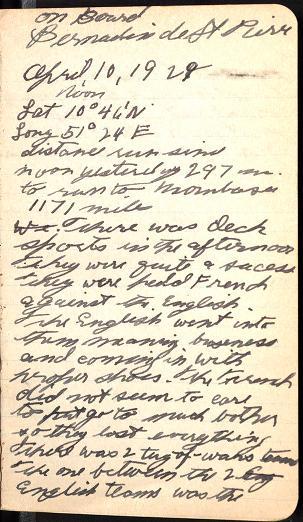 on Board
Bernadin de St Pierr
April 10, 1929
noon
Lat 10° 46' N
Long 51° 24 E
distance run sinc
noon yesterday 297 m.
to run to Mombasa
1171 mile
There was deck
sports in the afternoon
They were quite a sucess
They were head French
against the English
The English went into
them meaning buseness
and coming in with
proper shoes. The French
did not seem to care
to put go to much bother
& so they lost everything
There was 2 tug-of-wars
the one between the 2
English teams was the